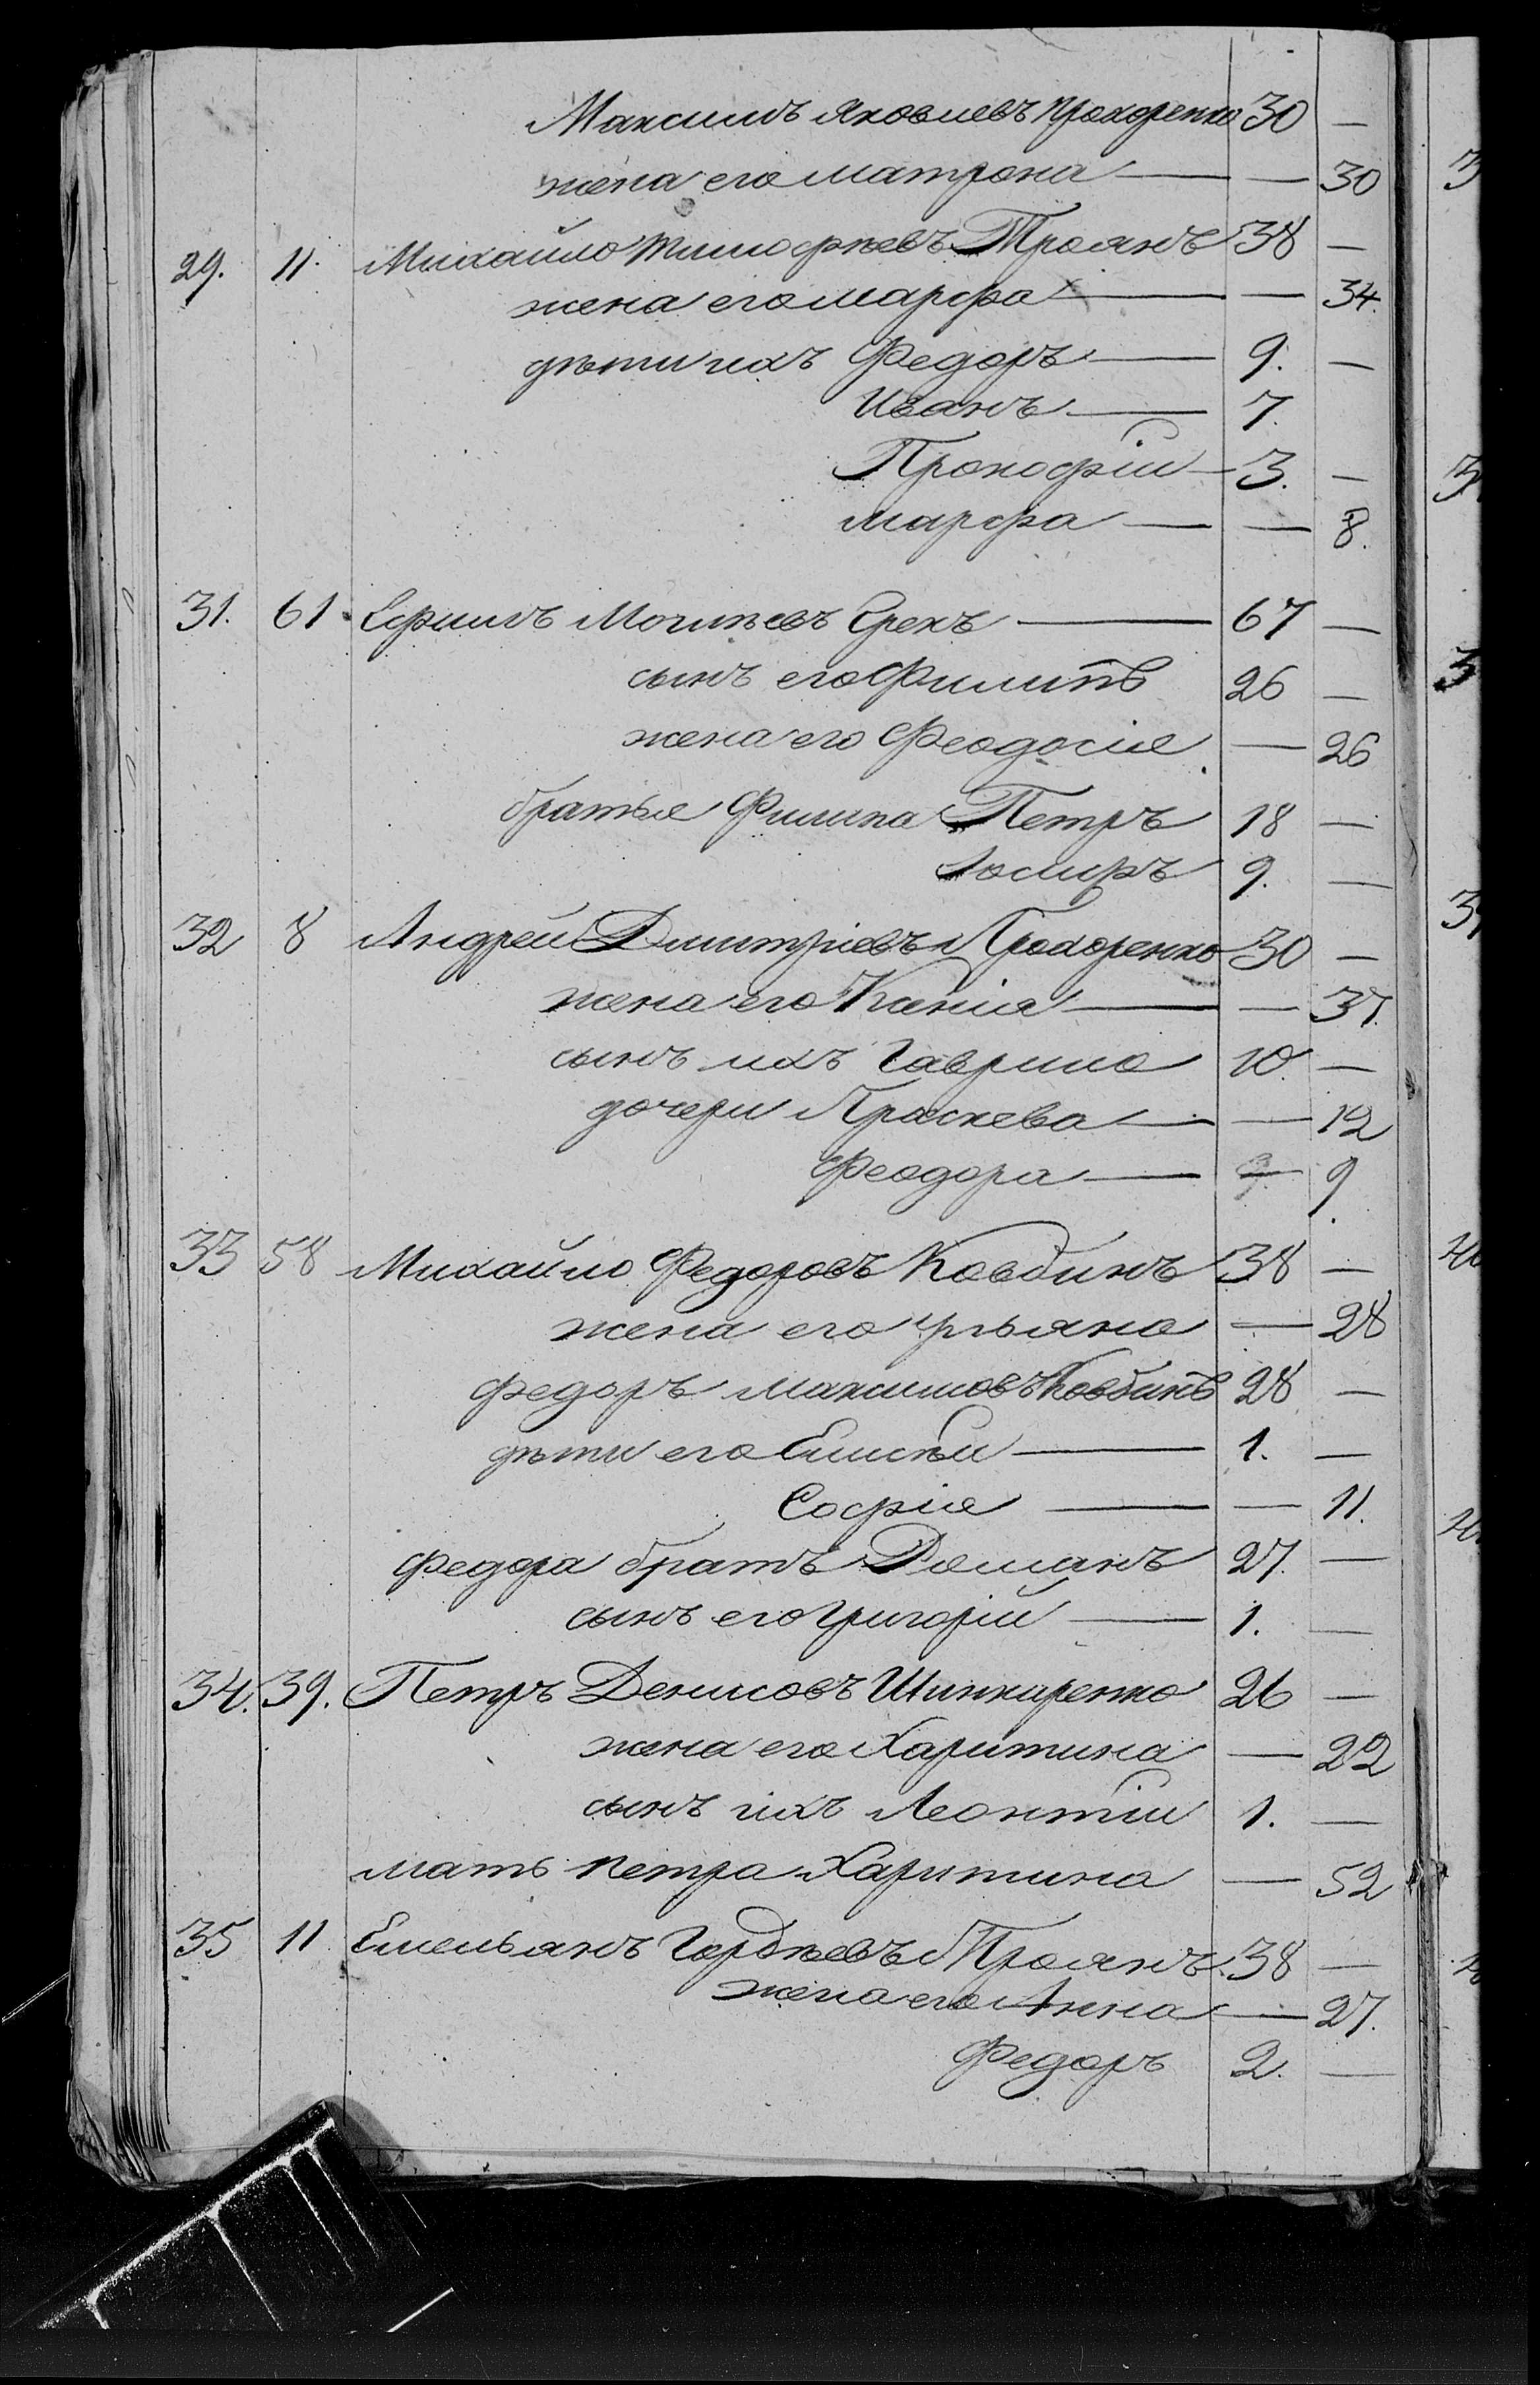 Максимъ Яковлевъ Прохоренко 30 —
жена его Матрона — — 30
29. 11. Михайло Тимофѣевъ Троянъ 38 —
жена его Марфа — — 34.
дѣти ихъ Федоръ — 9. —
Иванъ — 7.
Прокофiй — 3. —
Марфа — — 8.
31. 61 Ефимъ Моисѣевъ Грекъ — 67 —
сынъ его Филипъ 26 —
жена его Феодосiя — 26
братья Филипа Петръ 18 —
9. —
32 8 Андрей Дмитрiевъ Прохоренко 30 —
жена его Ксенiя — — 37.
сынъ ихъ Гаврило 10. —
дочери Праскева — — 12
Феодора — 9
33 58 Михайло Федоровъ Ковбинъ 38 —
жена его Ульяна — 28
Федоръ Максимовъ Ковбинъ 28 —
дѣти его Елисѣй — 1. —
Софiя — — 11.
Федора братъ Романъ 27. —
сынъ его Григорiй — 1. —
34. 39. Петръ Денисовъ Шинкаренко 26 —
жена его Харитина — 22
сынъ ихъ Леонтiй 1. —
мать Петра Харитина — 52
35 11 Емельянъ Гордѣевъ Троянъ 38 —
жена его Анна — 27.
Федоръ 2. —